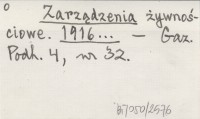 o
Zarządzenia żywnoś-
ciowe. 1916... — Gaz.
Podh. 4, nr 32.
#7050/2576